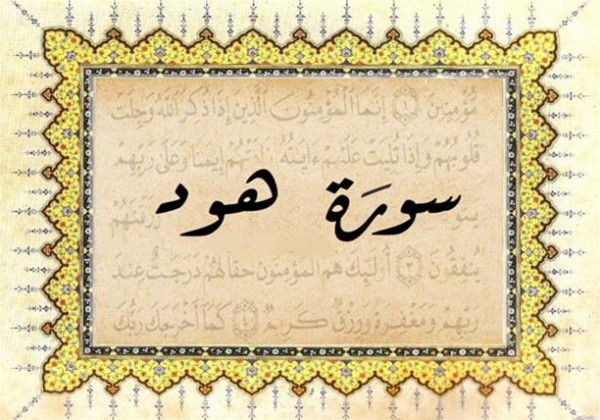 مُؤْمِنِينَ ١ إِنَّمَا الْمُؤْمِنُونَ الَّذِينَ إِذَا ذُكِرَ اللَّهُ وَجِلَتْ
قُلُوبُهُمْ وَإِذَا تُلِيَتْ عَلَيْهِمْ ءَايَتُهُ زَادَتْهُمْ إِيمَنًا وَعَلَى رَبِّهِمْ
سورَة هود
يُنفِقُونَ ٣ أُوْلَئِكَ هُمُ الْمُؤْمِنُونَ حَقًّا لَهُمْ دَرَجَتٌ عِندَ
رَبِّهِمْ وَمَغْفِرَةٌ وَرِزْقٌ كَرِيمٌ ٤ كَمَا أَخْرَجَكَ رَبُّكَ